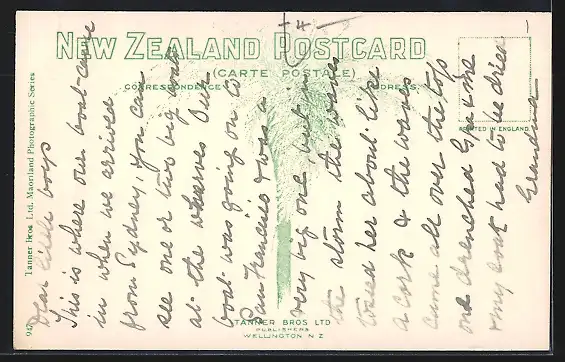 NEW ZEALAND POSTCARD
(CARTE POSTALE)
CORRESPONDENCE
ADDRESS
PRINTED IN ENGLAND
Tanner Bros Ltd. Maoriland Photographic Series
94
Dear little boys
This is where our boat came
in when we arrived
from Sydney, you can
see one or two big boats
at the wharves Our
boat was going on to
San Francisco & was a
very big one, but in
the storm the waves
tossed her about like
a cork & the waves
came all over the top
and drenched G, & me
& my coat had to be dried
Grandma
TANNER BROS LTD
PUBLISHERS
WELLINGTON N Z